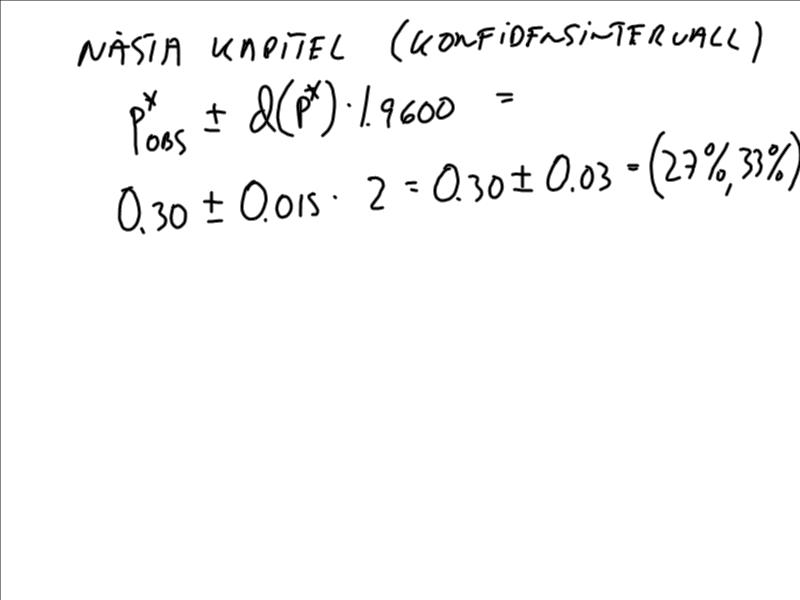 NÄSTA KAPITEL (KONFIDENSINTERVALL)
p*OBS ± d(p*) · 1.9600 =
0.30 ± 0.015 · 2 = 0.30 ± 0.03 = (27%, 33%)